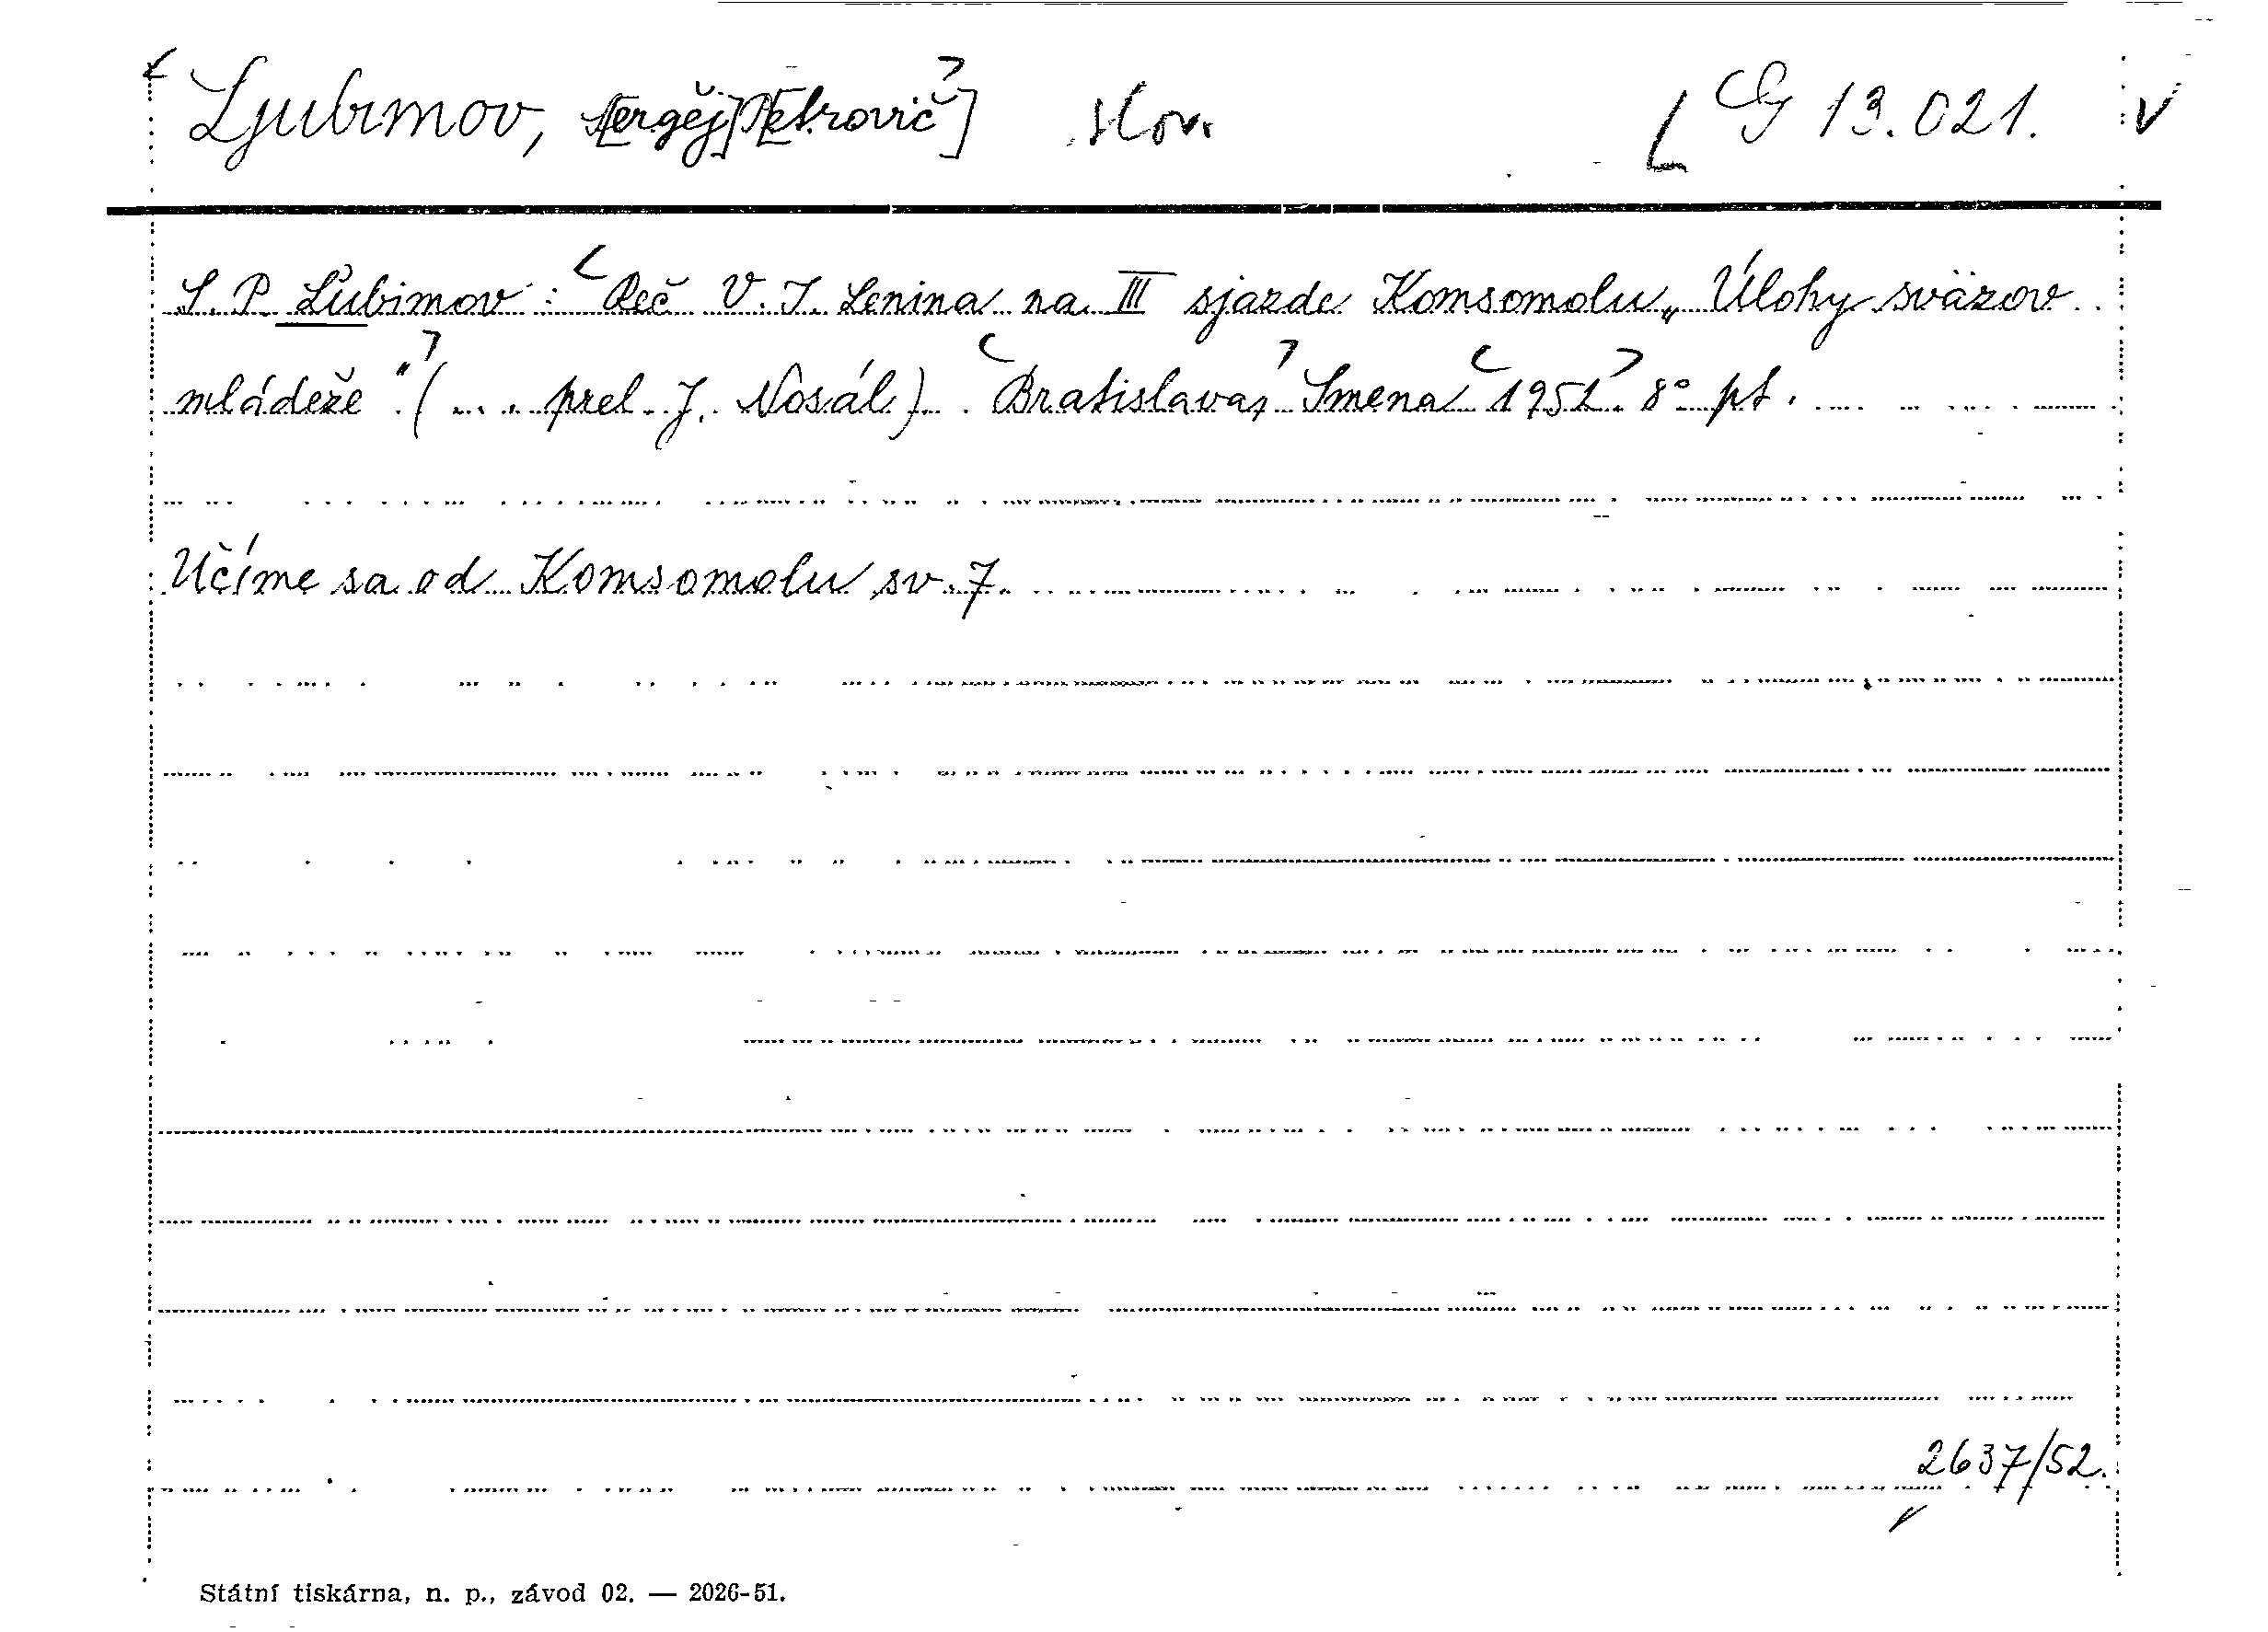 Ljubimov, S[ergěj] P[etrovič] slov. [Cg 13.021. V
S. P. Ľubimov: Reč V. I. Lenina na III sjazde Komsomolu „Úlohy sväzov
mládeže" (... prel. J. Nosál). Bratislava, Smena 1951. 8° pt.
Učíme sa od Komsomolu sv. 7.
2637/52.
Státní tiskárna, n. p., závod 02. — 2026-51.